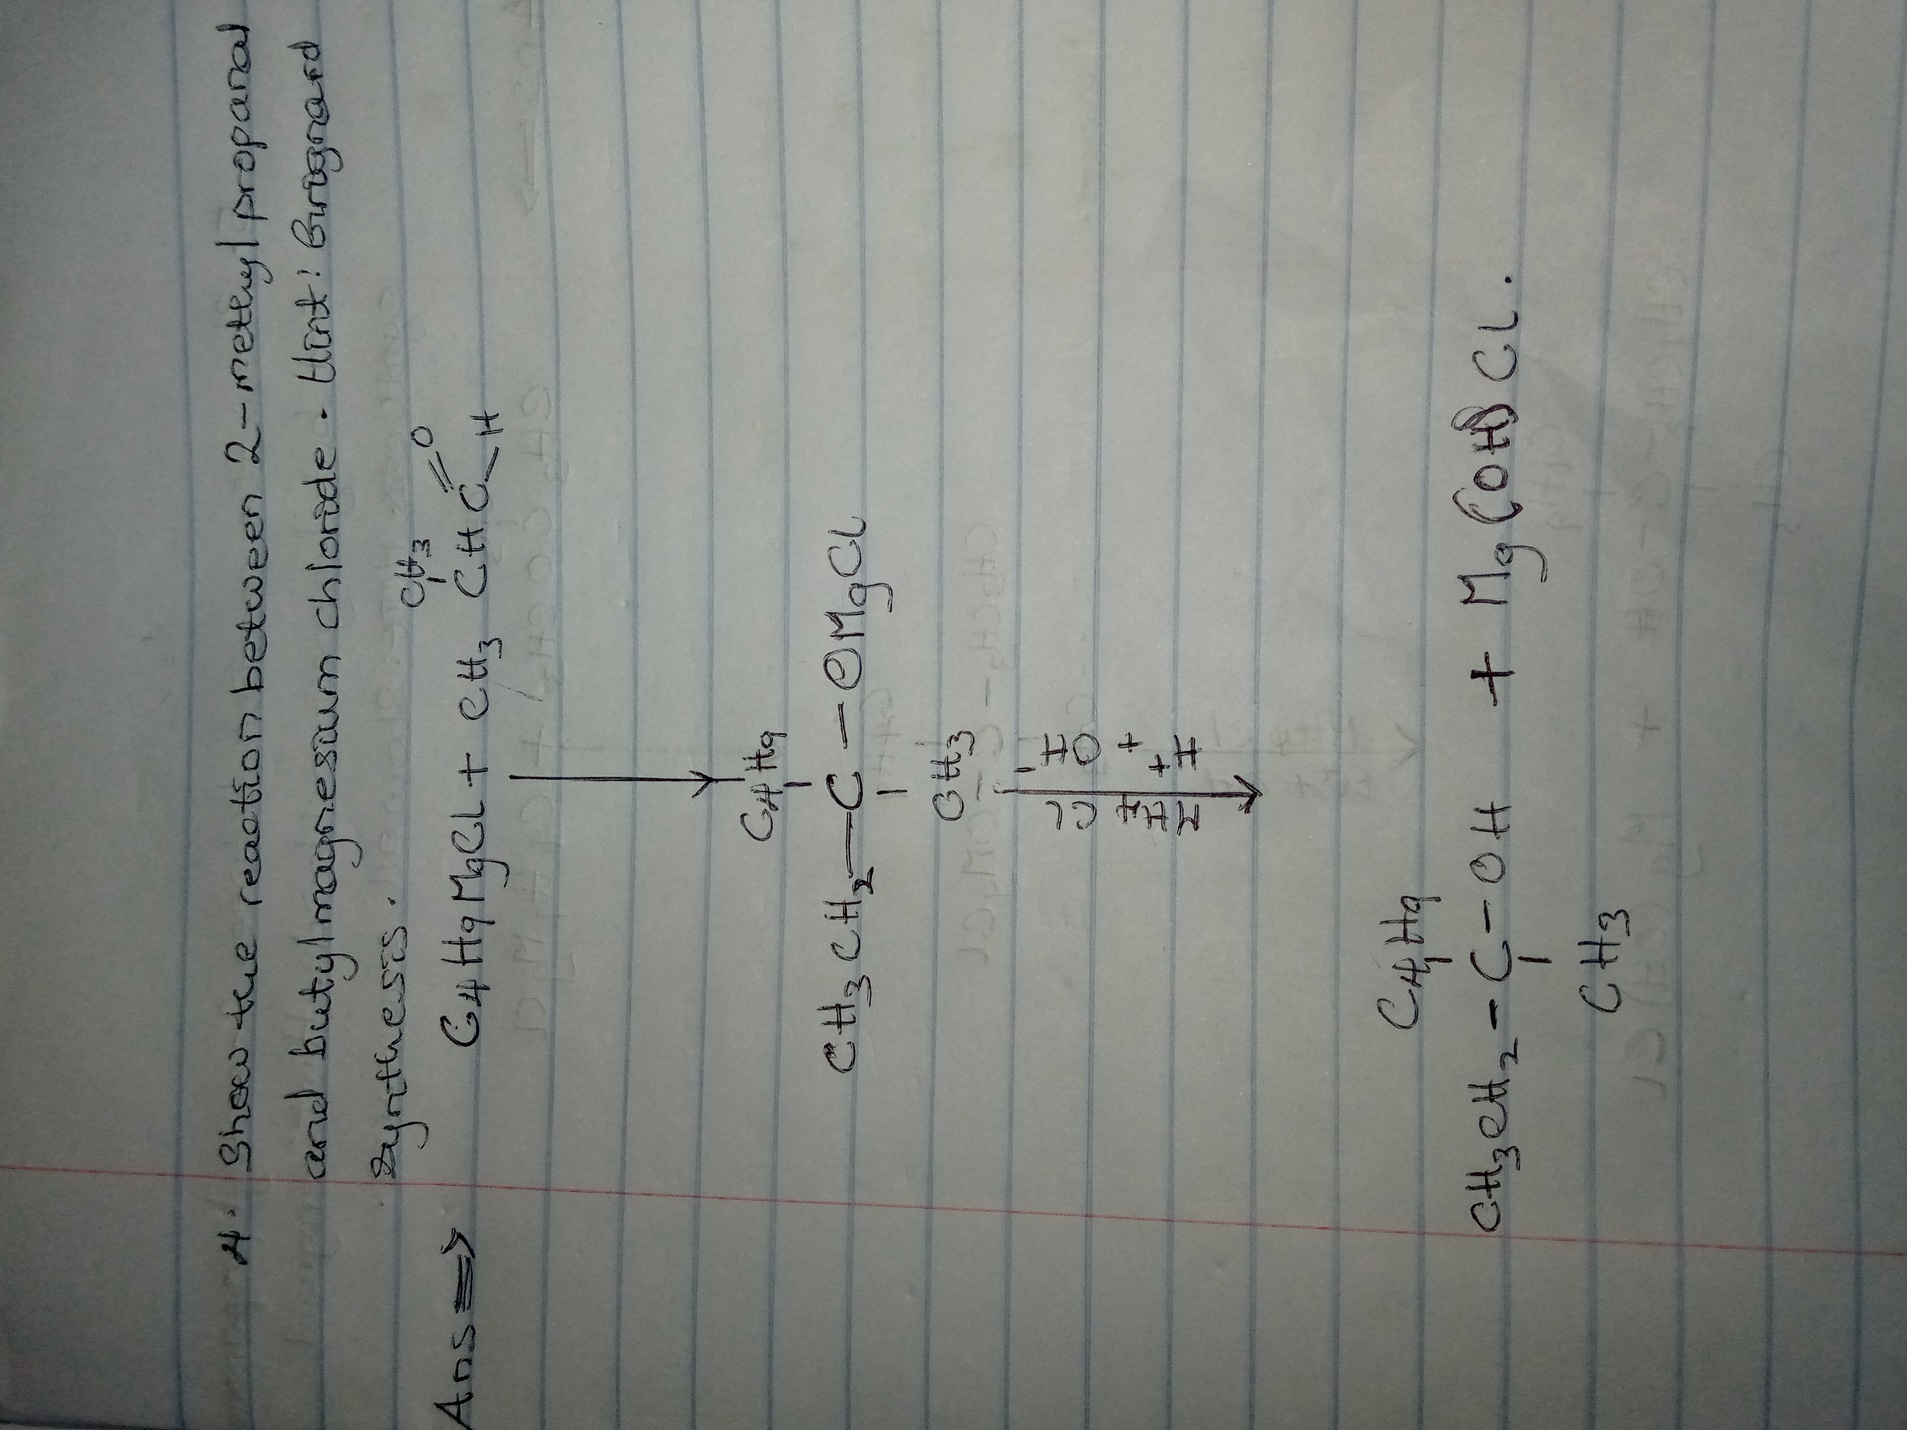 4. Show the reaction between 2-methyl propanal
and butylmagnesium chloride. Hint: Grignard
synthesis.
CH3 O
Ans ⇒ C4H9MgCl + CH3 CHC
H
C4H9
CH3CH2—C—OMgCl
CH3
H2O
H+
C4H9
CH3CH2—C—OH + Mg(OH)Cl.
CH3